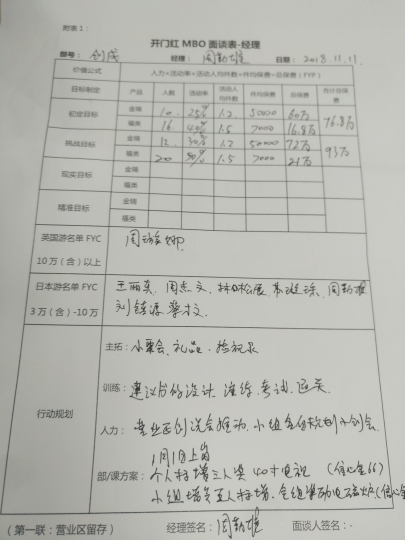 附表1：
开门红 MBO 面谈表-经理
部号： 创成 经理： 周勤雄 日期： 2018.11.11.
价值公式 人力×活动率×活动人均件数×件均保费=总保费（FYP）
目标制定 产品 人数 活动率 活动人均件数 件均保费 总保费 合计总保费
初定目标 金瑞 10 25% 1.2 50000 60万 76.8万
福类 16 40% 1.5 7000 16.8万
挑战目标 金瑞 12 30% 1.2 50000 72万 93万
福类 20 50% 1.5 7000 21万
现实目标 金瑞
福类
精准目标 金瑞
福类
英国游名单 FYC
10万（含）以上
周
日本游名单 FYC
3万（含）-10万
王丽英、周志文、林松展、周勤雄
刘
行动规划
主拓：小聚会、礼品、
训练：建议书的设计、演练、考试、通关
人力：营业区创说会推动、小组
1月1日上岗
部/课方案：个人标增三人奖40寸电视（信心金66）
小组增员五人标增、
（第一联：营业区留存） 经理签名： 周勤雄 面谈人签名：